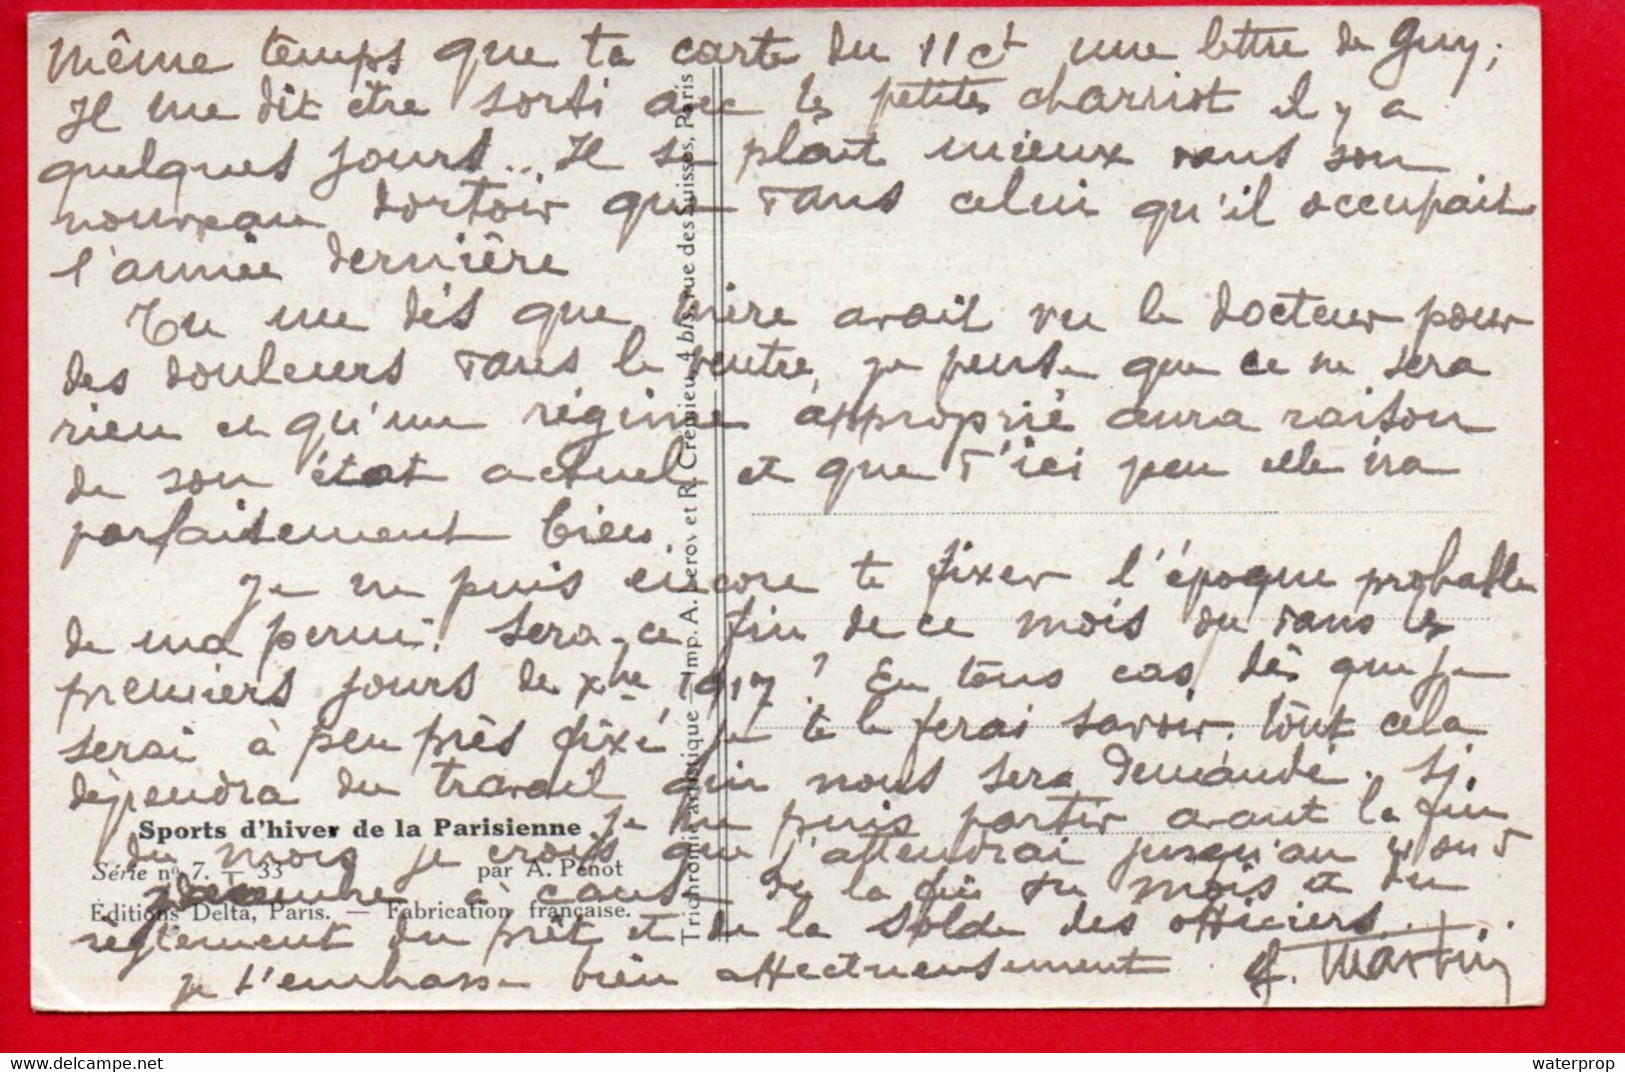 même temps que ta carte du 11 ct une lettre de Guy;
Il me dit être sorti avec les petites charriot il y a
quelques jours... Il se plait mieux dans son
nouveau dortoir que dans celui qu'il occupait
l'année dernière
Tu me dis que mère avait vu le docteur pour
des douleurs dans le ventre, je pense que ce ne sera
rien et qu'un régime approprié aura raison
de son état actuel et que d'ici peu elle ira
parfaitement bien.
Je ne puis encore te fixer l'époque probable
de ma perm. Sera-ce fin de ce mois ou dans les
premiers jours de Xbre 1917? En tous cas dès que je
serai à peu près fixé je te le ferai savoir. tout cela
dépendra du travail qui nous sera demandé. Si
je ne puis partir avant la fin
du mois je crois que j'attendrai jusqu'au
décembre à cause de la fin du mois et du
règlement du prêt et de la solde des officiers...
je t'embrasse bien affectueusement
F. Martin
Sports d'hiver de la Parisienne
Série no 7. — 33 par A. Penot
Éditions Delta, Paris. — Fabrication française.
Trichromie artistique — Imp. A. Leroy et R. Crémieu, 4 bis, rue des Suisses, Paris
waterprop